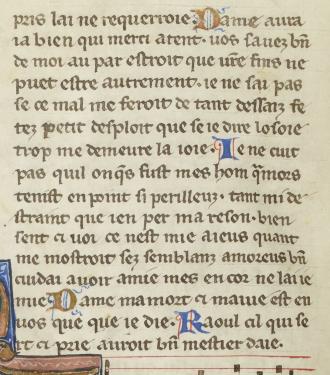 pris lai ne requerroie. Dame aura
ia bien qui merci atent. uos sauez bn̄
de moi au par estroit que ur̄e sins ne
puet estre autrement. ie ne sai pas
se ce mal me feroit de tant dessaiz se
tez petit desploit que se ie dire losoie
trop me demeure la ioie. Ie ne cuit
pas quil onq̄s fust mes hom q̄mors
tenist en point si perilleuz. tant mi de
straint que ien per ma reson. bien
sent ci uoi ce nest mie aieus quant
me mostroit sez semblanz amoreus bn̄
cuidai auoir amie mes en cor ne lai ie
mie. Dame ma mort ci ma uie est en
uos que que ie die. Raoul cil qui se
rt ci prie auroit bn̄ mestier daie.